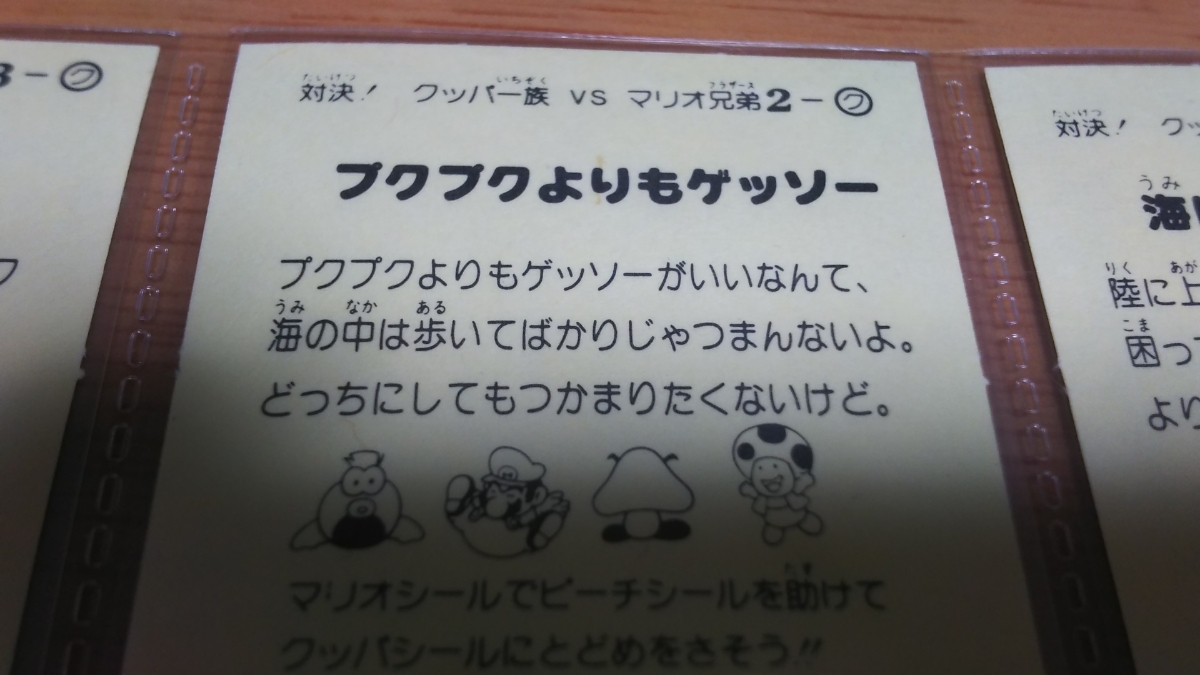 3-ク
対決! クッパ一族 VS マリオ兄弟2-ク
たいけつ いちぞく ブラザーズ
プクプクよりもゲッソー
プクプクよりもゲッソーがいいなんて、
うみ なか ある
海の中は歩いてばかりじゃつまんないよ。
どっちにしてもつかまりたくないけど。
マリオシールでピーチシールを助けて
たす
クッパシールにとどめをさそう!!
ク
たいけつ
対決! ク
うみ
海
りく あが
陸に上
こま
困っ
より